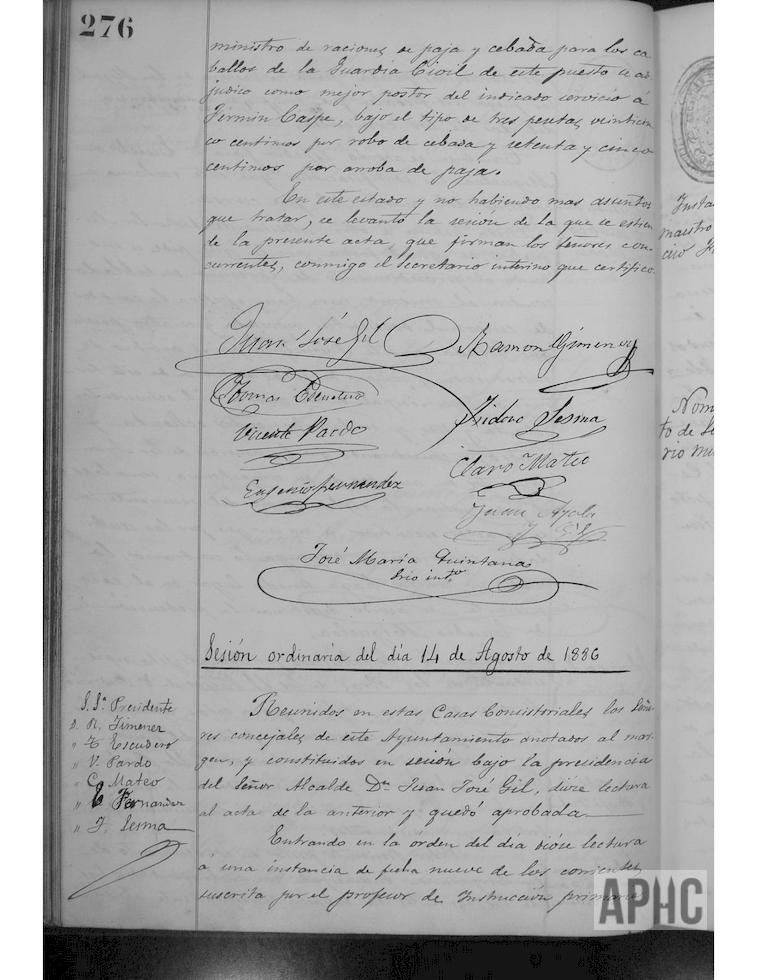 276
ministro de raciones de paja y cebada para los ca
ballos de la Guardia Civil de este puesto se ad
judicó como mejor postor del indicado servicio á
Fermin Caspe, bajo el tipo de tres pesetas veinticin
co centimos por robo de cebada y setenta y cinco
centimos por arroba de paja.
En este estado y no habiendo mas asuntos
que tratar, se levantó la sesión de la que se estien
de la presente acta, que firman los Señores con
currentes, conmigo el Secretario interino que certifico
Juan José Gil
Ramon Gimenez
Tomas Escudero
Isidoro Sesma
Vicente Pardo
Claro Mateo
Eugenio Fernandez
Juan Ayala
y Gil
José María Quintana
Srio intº
Sesión ordinaria del día 14 de Agosto de 1886
S. Sª. Presidente
D. R. Jimenez
" T. Escudero
" V. Pardo
" C. Mateo
" E. Fernandez
" I. Sesma
Reunidos en estas Casas Consistoriales los Seño
res concejales de este Ayuntamiento anotados al mar
gen, y constituidos en sesión bajo la presidencia
del Señor Alcalde Dn Juan José Gil, dióse lectura
al acta de la anterior y quedó aprobada
Entrando en la órden del día dióse lectura
á una instancia de fecha nueve de los corrientes,
suscrita por el profesor de Instrucción primaria
Insta
maestro
cio F
Nom
to de Se
rio mu
APHC